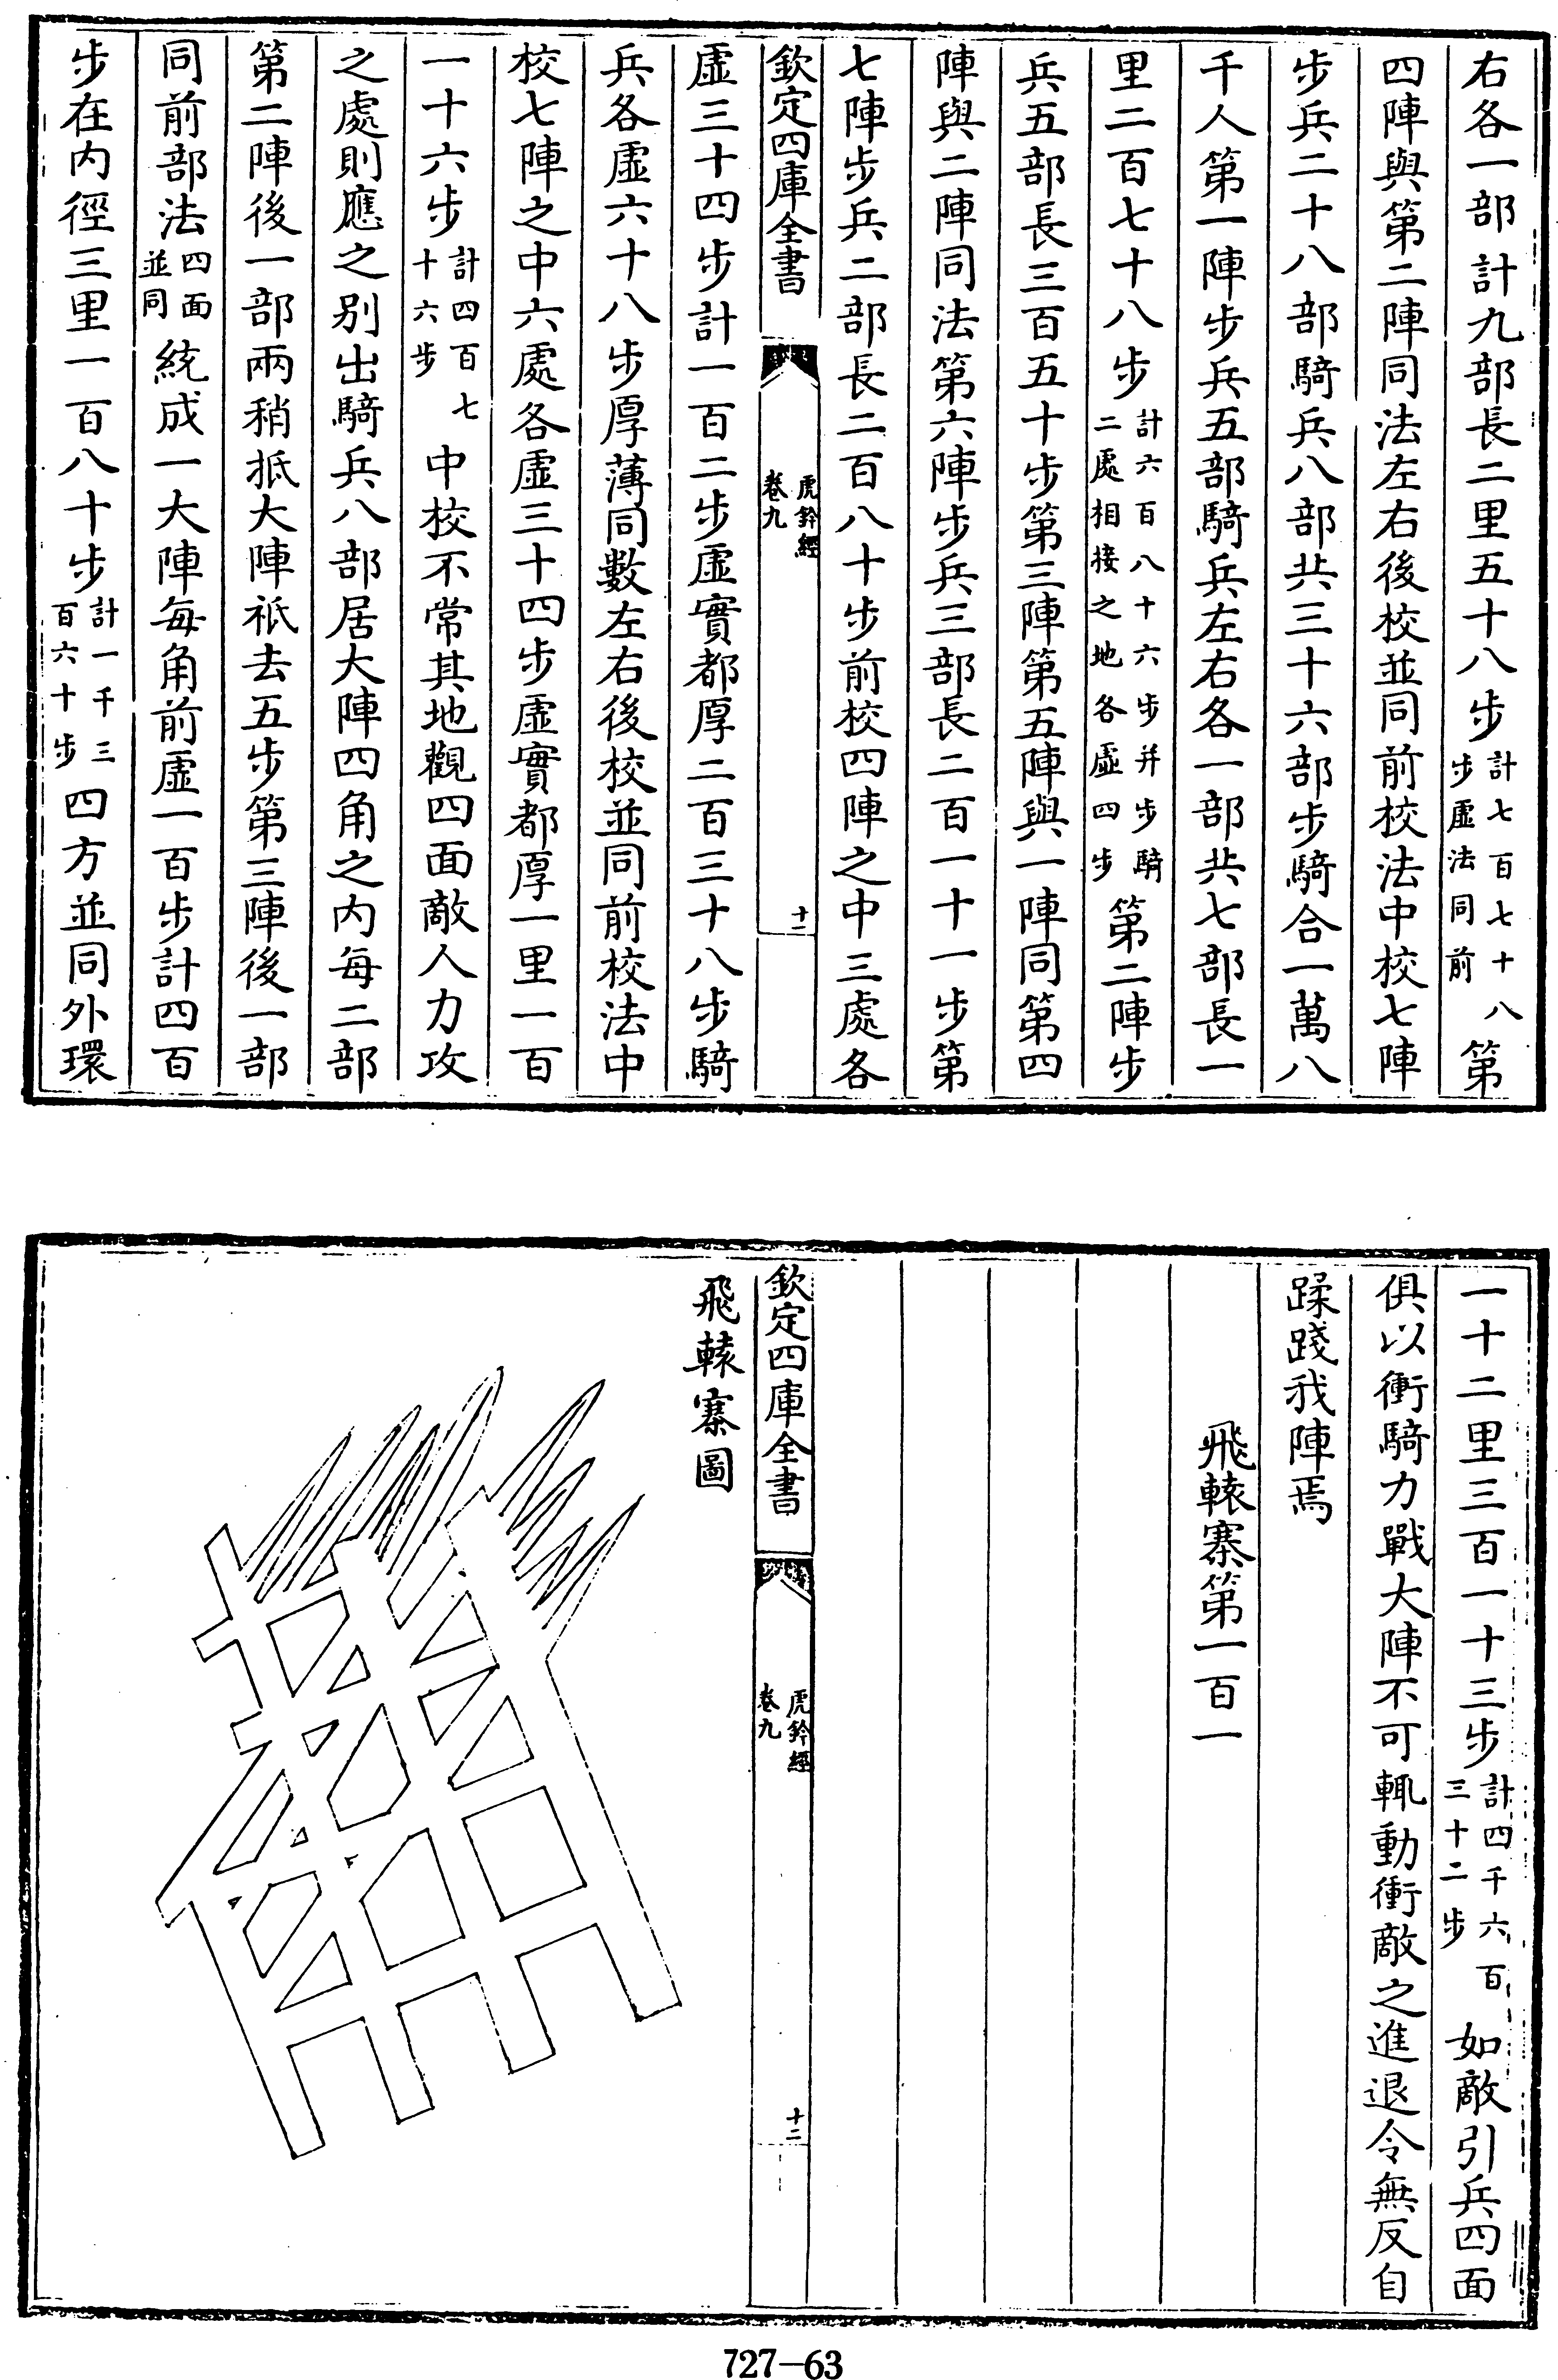 右各一部計九部長二里五十八步計七百七十八步虛法同前第
四陣與第二陣同法左右後校並同前校法中校七陣
步兵二十八部騎兵八部共三十六部步騎合一萬八
千人第一陣步兵五部騎兵左右各一部共七部長一
里二百七十八步計六百八十六步并步騎二處相接之地各虛四步第二陣步
兵五部長三百五十步第三陣第五陣與一陣同第四
陣與二陣同法第六陣步兵三部長二百一十一步第
七陣步兵二部長二百八十步前校四陣之中三處各
欽定四庫全書
虎鈐經
卷九
十一
虛三十四步計一百二步虛實都厚二百三十八步騎
兵各虛六十八步厚薄同數左右後校並同前校法中
校七陣之中六處各虛三十四步虛實都厚一里一百
一十六步計四百七十六步中校不常其地觀四面敵人力攻
之處則應之别出騎兵八部居大陣四角之内每二部
第二陣後一部兩稍抵大陣祇去五步第三陣後一部
同前部法四面並同統成一大陣每角前虛一百步計四百
步在内徑三里一百八十步計一千三百六十步四方並同外環
一十二里三百一十三步計四千六百三十二步如敵引兵四面
俱以衝騎力戰大陣不可輒動衝敵之進退令無反自
蹂踐我陣焉
飛轅寨第一百一
欽定四庫全書
虎鈐經
卷九
十二
飛轅寨圖
727-63